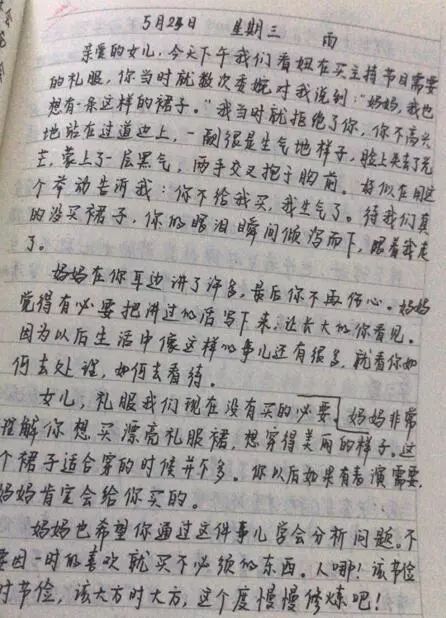 5月24日 星期三 雨
亲爱的女儿，今天下午我们看妞在买主持节目需要
的礼服，你当时就数次委婉对我说到："妈妈，我也
想有一条这样的裙子。"我当时就拒绝了你，你不高兴
地站在过道边上，一副很是生气地样子，脸上失去了光
芒，蒙上了一层黑气，两手交叉抱于胸前。好似在用这
个举动告诉我：你不给我买，我生气了。待我们真
的没买裙子，你的眼泪瞬间倾泻而下，跟着我走
了。
妈妈在你耳边讲了许多，最后你不再伤心。妈妈
觉得有必要把讲过的话写下来，让长大的你看见。
因为以后生活中像这样的事儿还有很多，就看你如
何去处理，如何去看待。
女儿，礼服我们现在没有买的必要。妈妈非常
理解你想买漂亮礼服裙，想穿得美丽的样子。这
个裙子适合穿的时候并不多。你以后如果有表演需要，
妈妈肯定会给你买的。
妈妈也希望你通过这件事儿学会分析问题。不
要因一时的喜欢就买不必须的东西。人哪！该节俭
时节俭，该大方时大方，这个度慢慢修炼吧！